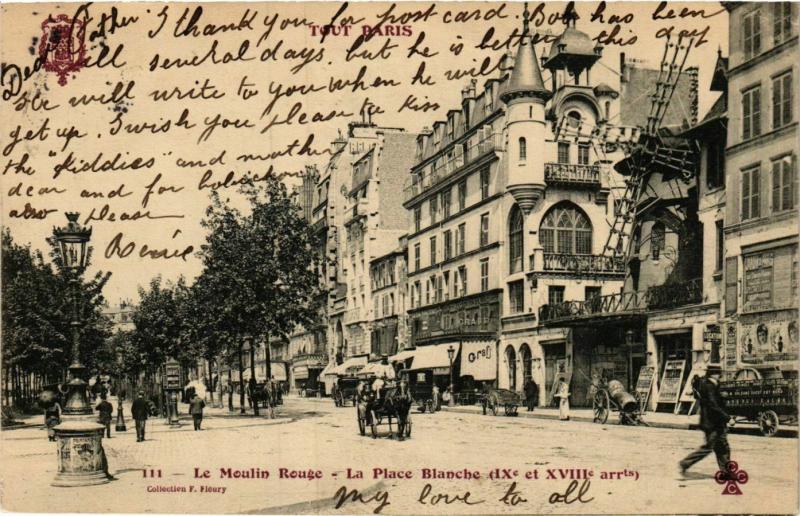 TOUT PARIS
Dear Father I thank you for post card. Bob has been
ill several days, but he is better this day
He will write to you when he will
get up. I wish you please to kiss
the "Kiddies" and mother
dear and for
also please
Renée
GRAFF
111 - Le Moulin Rouge - La Place Blanche (IXe et XVIIIe arrts)
Collection F. Fleury
My love to all